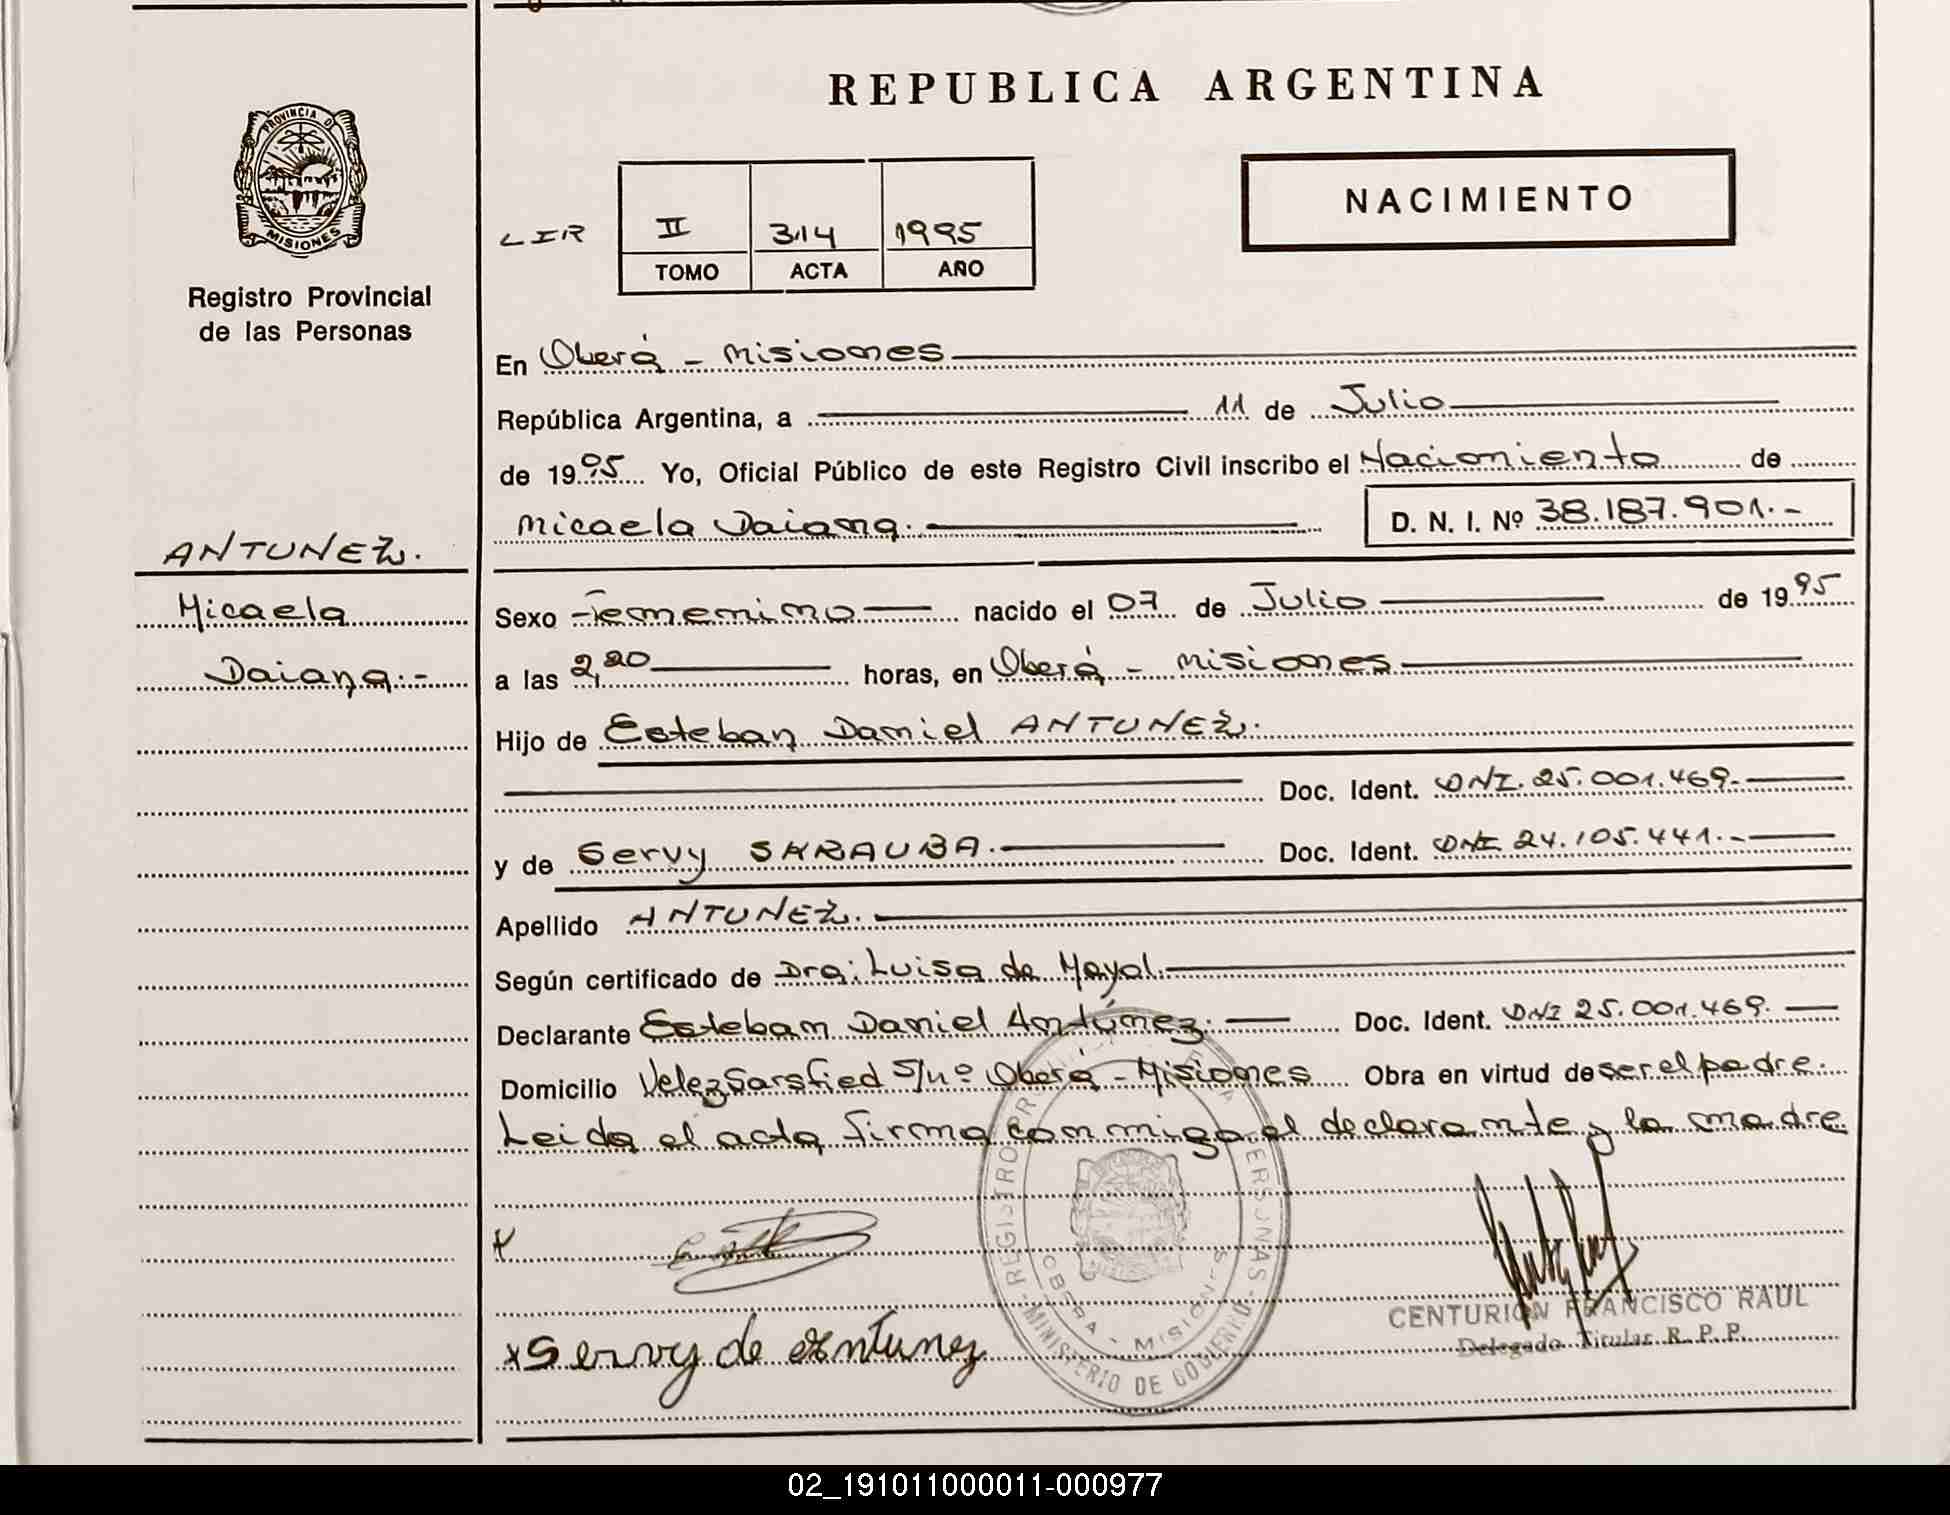 REPUBLICA ARGENTINA
PROVINCIA DE
MISIONES
Registro Provincial
de las Personas
NACIMIENTO
LIR II 314 1995
TOMO ACTA AÑO
En Oberá - Misiones
República Argentina, a 11 de Julio
de 1995 Yo, Oficial Público de este Registro Civil inscribo el Nacimiento de
Micaela Daiana. D. N. I. Nº 38.187.901.-
ANTUNEZ.
Micaela
Daiana.-
Sexo Femenino nacido el 07 de Julio de 1995
a las 2,20 horas, en Oberá - Misiones
Hijo de Esteban Daniel ANTUNEZ.
Doc. Ident. DNI. 25.001.469.-
y de Servy SKRAUBA. Doc. Ident. DNI 24.105.441.-
Apellido ANTUNEZ.
Según certificado de Dra: Luisa de Mayol.
Declarante Esteban Daniel Antúnez. Doc. Ident. DNI 25.001.469.
Domicilio Velez Sarsfied S/Nº Oberá - Misiones Obra en virtud de ser el padre.
Leida el acta firma conmigo el declarante y la madre
REGISTRO PERSONAS
OBERA - MISIONES
MINISTERIO DE GOBIERNO
CENTURION FRANCISCO RAUL
Delegado Titular R. P. P.
x Servy de Antunez
02_191011000011-000977